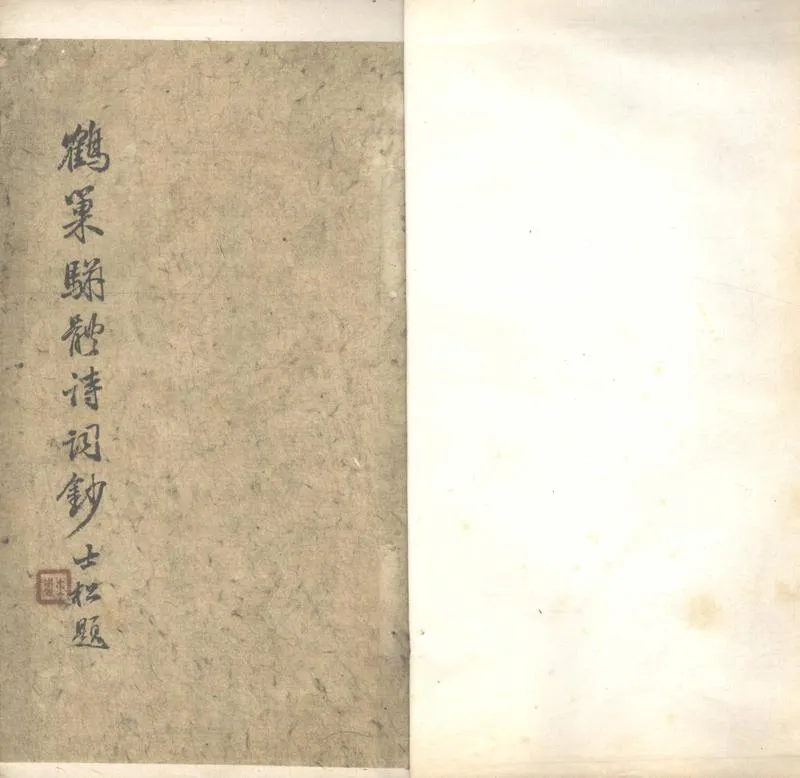 鶴巢駢體詩詞鈔
士松題